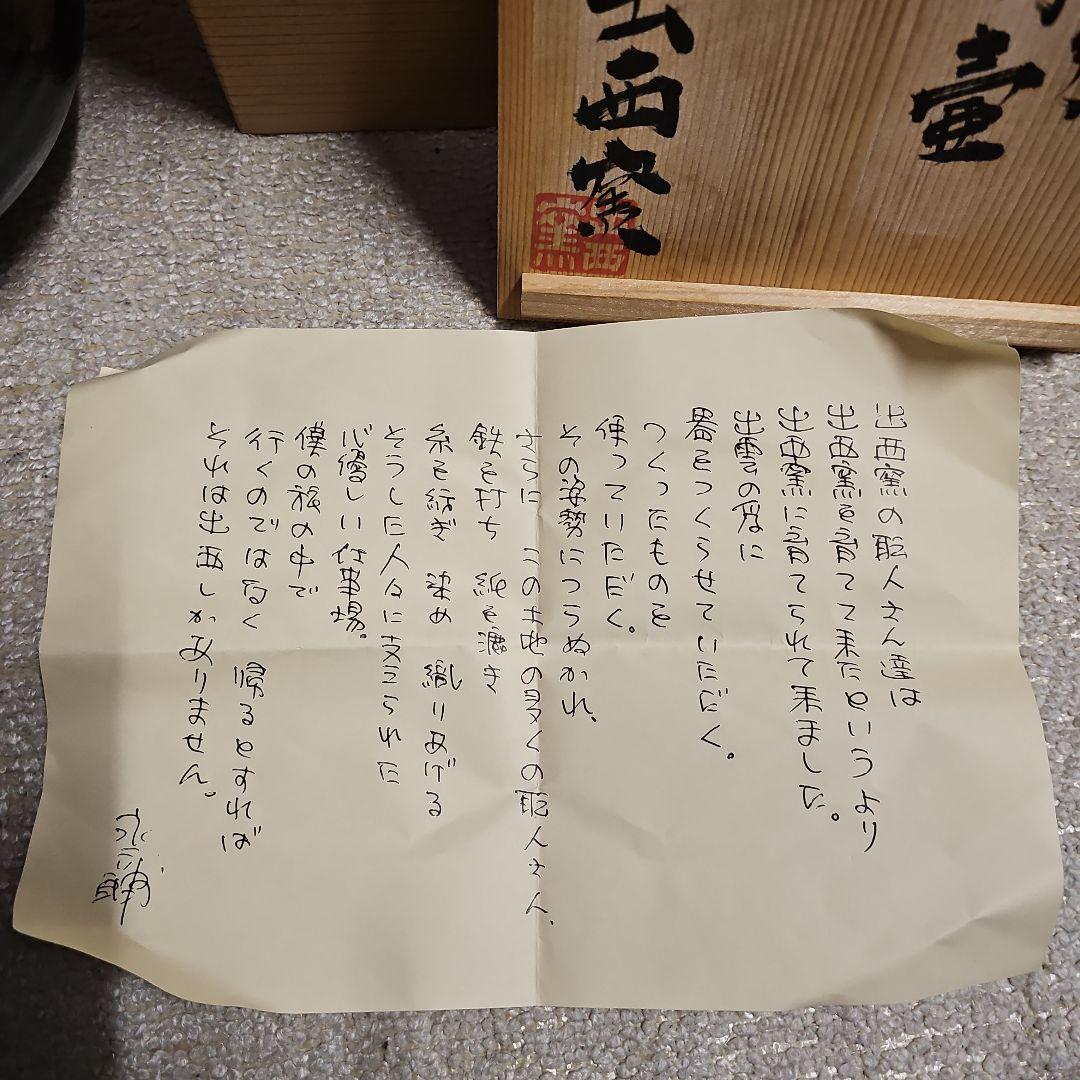 壷
出西窯
出西窯の職人さん達は
出西窯を育てて来たというより
出西窯に育てられて来ました。
出雲の為に
器をつくらせていただく。
つくったものを
使っていただく。
その姿勢につらぬかれ、
さらに この土地の多くの職人さん、
鉄を打ち 紙を漉き
糸を紡ぎ 染め 織りあげる
そうした人々に支えられた
心優しい仕事場。
僕の旅の中で
行くのではなく 帰るとすれば
それは出西しかありません。